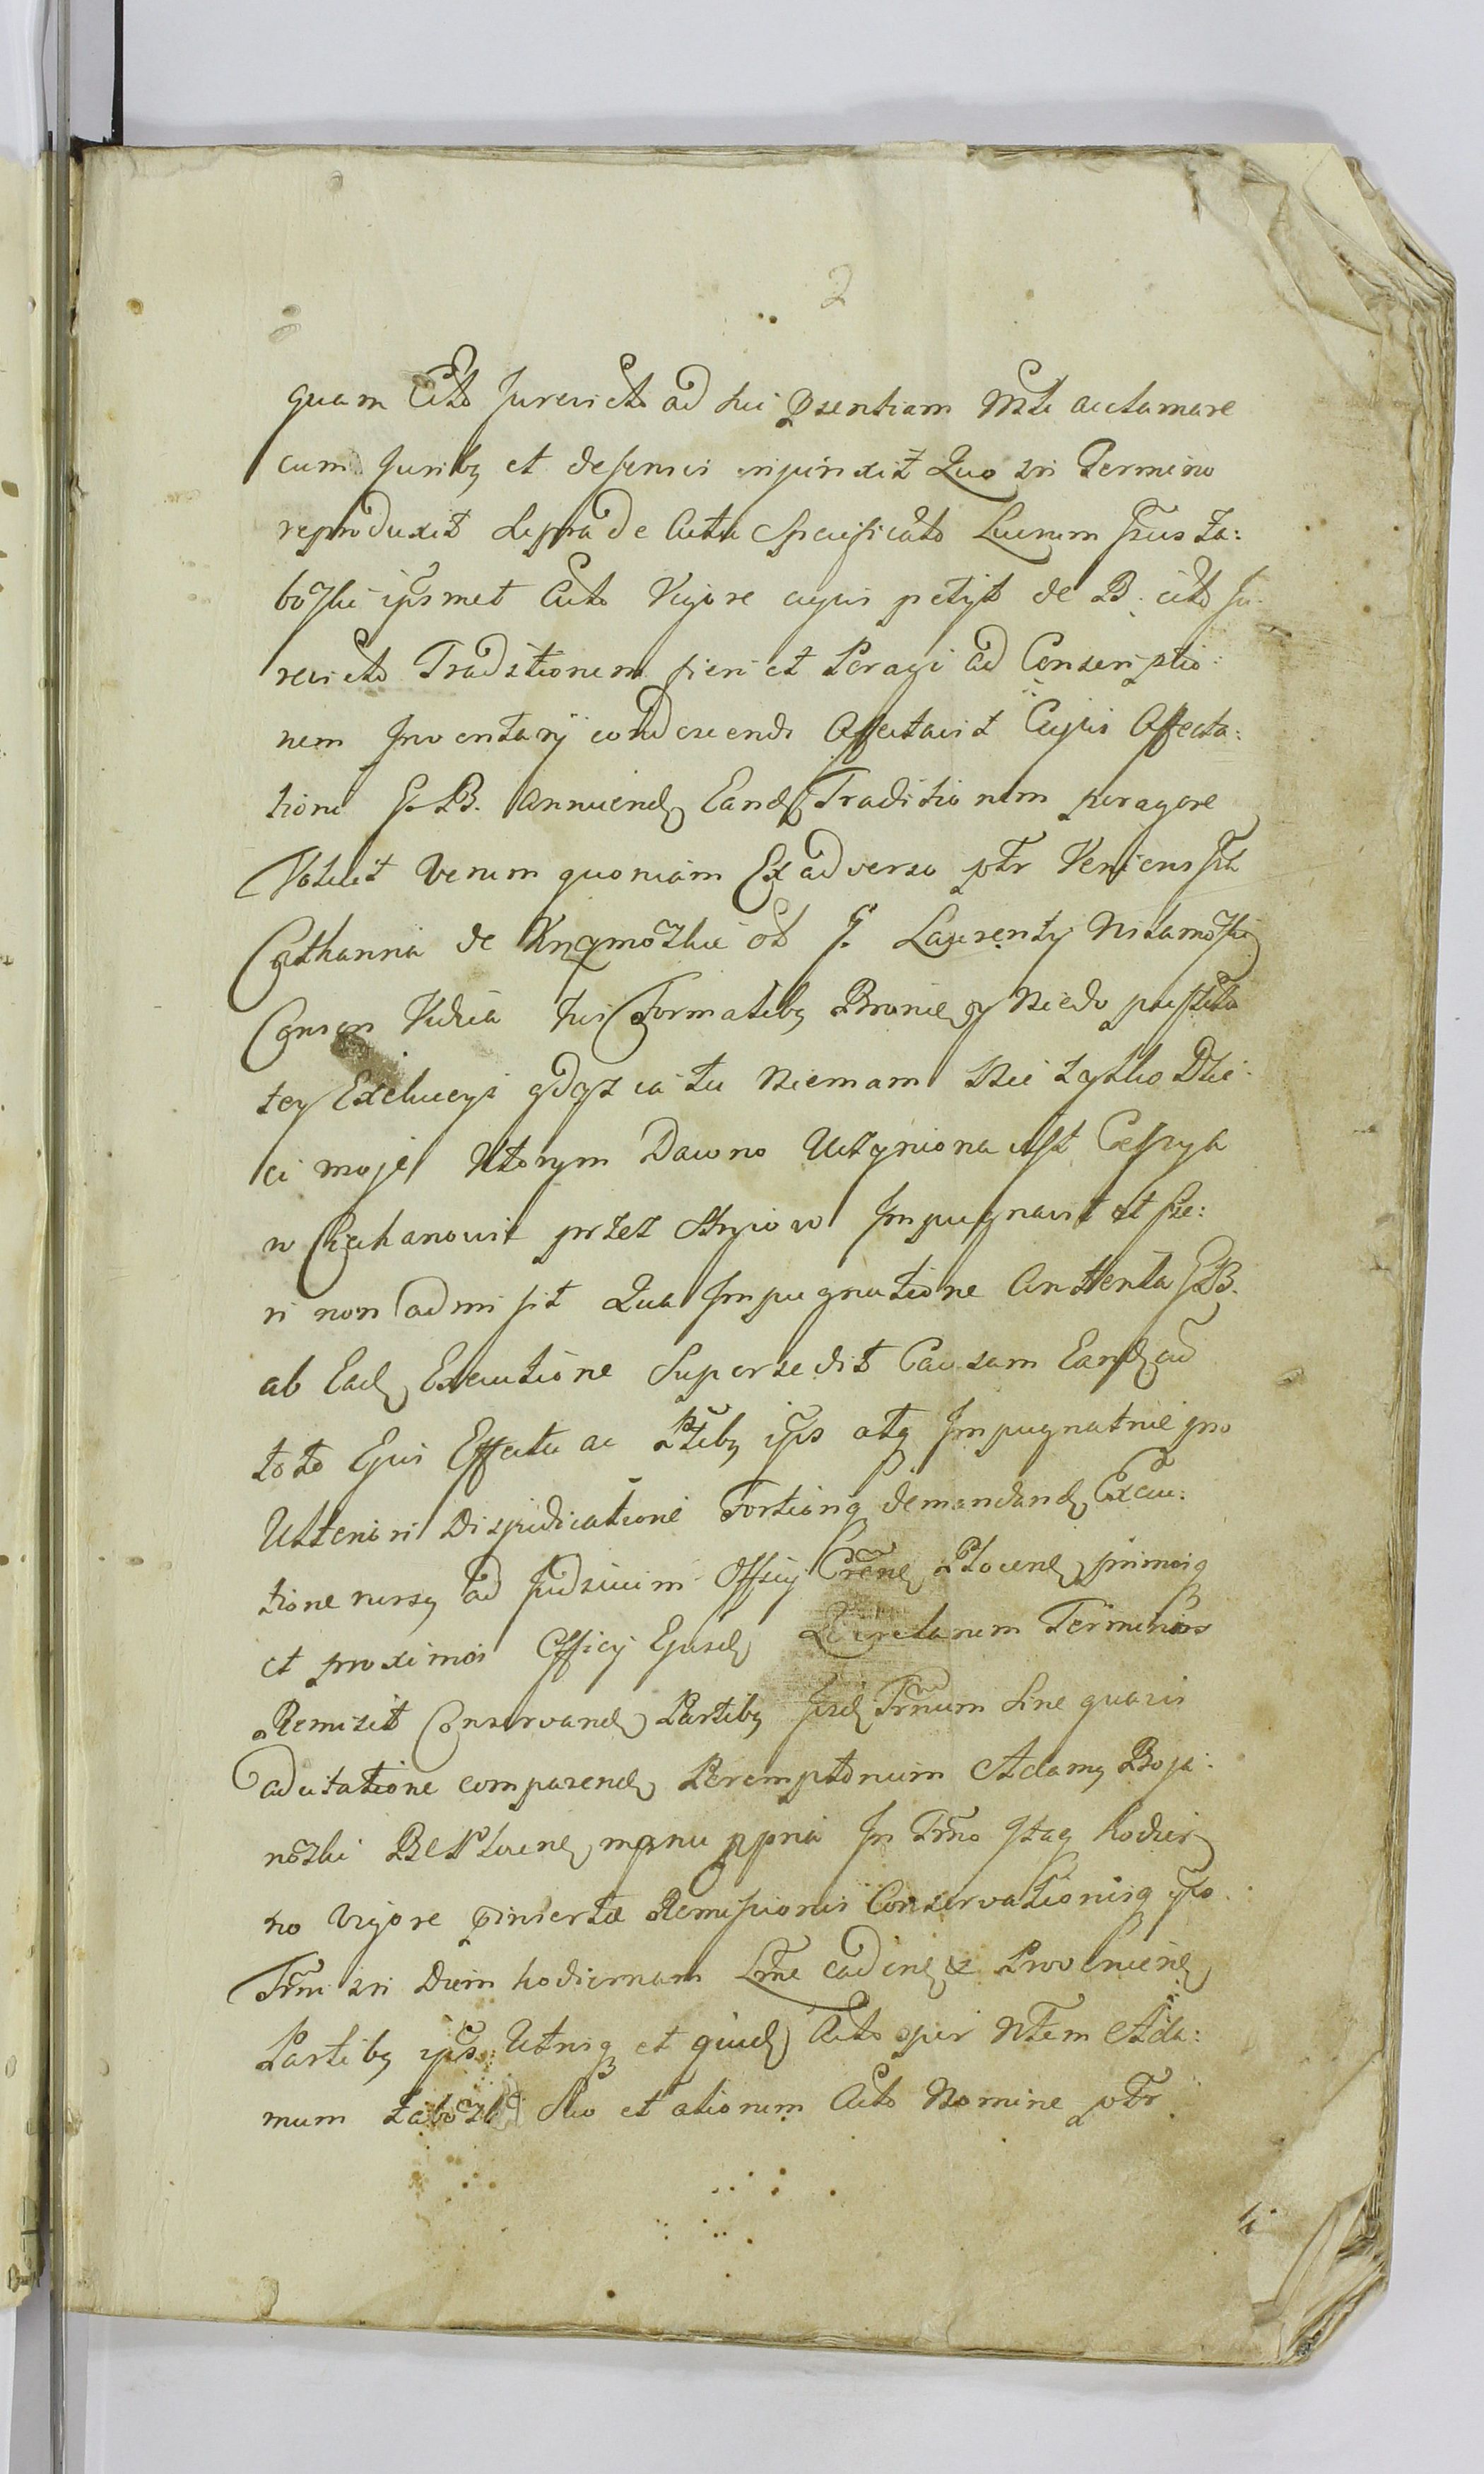 2
quam Acto Jurevicto ad sui psentiam Mste acclamare
cum Juriby et defensis inpinxit Quo in Termino
reproduxit Supra de Actu Specificato Lucrum Grus Za:
bozki ipsmet Acto Vigore cujus petyt de B. acto Ju:
revicto Traditionem fieri et Peragi ad Conscriptio:
nem Inventarij condescendi Affectavit Cujus Affecta:
tioni G. B. annuend Eand Traditionem peragere
Voluit Verum quoniam Ex adverso ptr Veniens
Catharina de ob G. Laurentij
Consors Vidua his Formaliby Bronie y Niedopuszcza
tey Exekucyi gdyz ia tu Niemam Nic tylko Dzie:
ci moje Ktorym Dawno Uczyniona iest Cessya
w Ciechanowie przez Stryiow Impugnavit et fie:
ri non admisit Qua Impugnatione Anttenta GB.
ab Ead Executione Supersedit Causam Eand cu
toto Ejus Effectu ac Ptiby ips atq Impugnatrice pro
Ulteriori Disjudicatione Fortiorisq demandand Execu:
tione rursy ad Judicium Officij Crens Plocens primosq
et proximos Officij Ejusd Querelarum Terminos
Remisit Conservand Partiby Iisd Trnum Sine quavis
adcitatione comparend Peremptorium Adamy Boja:
nozki Plocens manu ppria In Trno Itaq hodier
no Vigore pinsertæ Remissionis Conservationisq ipso
Trni in Diem hodiernam Ltme cadend & Proveniend
Partiby ips Utrisq et quid Acto per Ntem Ada:
mum Zabozk Suo et aliorum Acto Nomine ptr